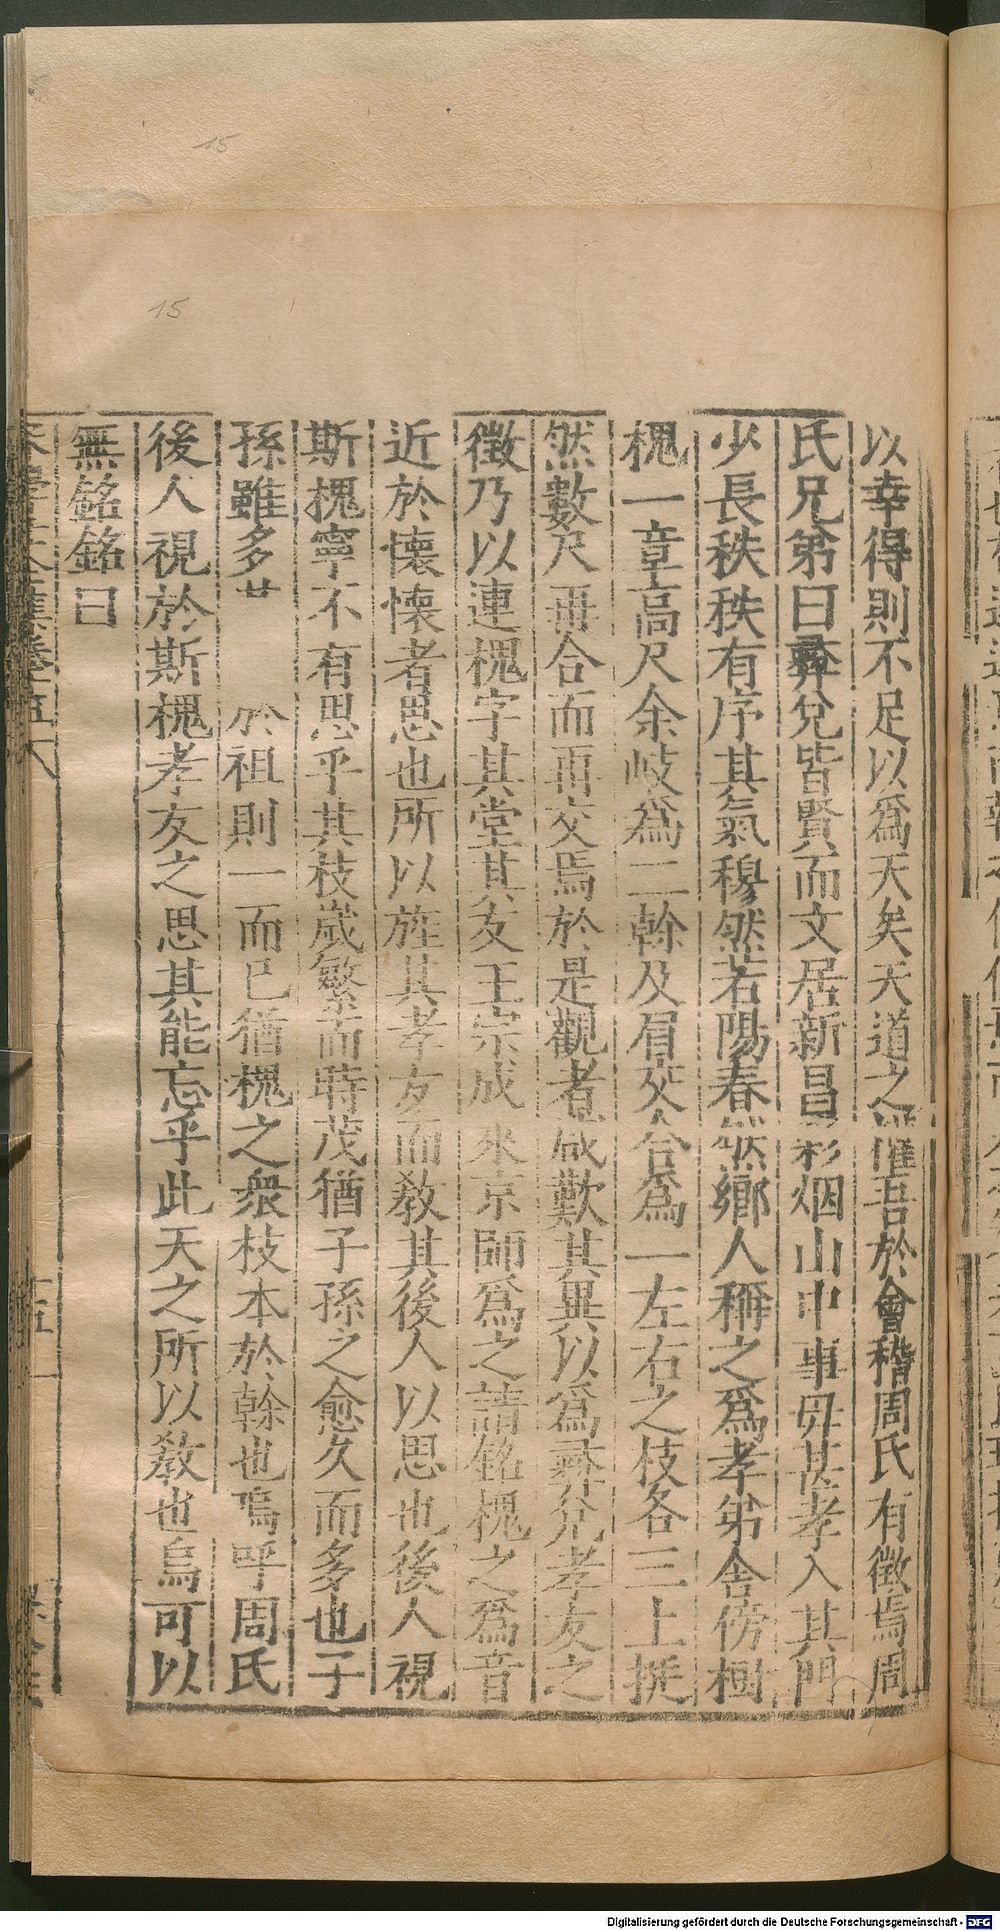 以幸得則不足以爲天矣天道之 惟吾於會稽周氏有徵焉周
氏兄弟曰彞兌皆賢而文居新昌彩烟山中事毋甚孝入其門
少長秩秩有序其氣穆然若陽春然鄉人稱之爲孝弟舍傍植
槐一章高尺余岐爲二幹及眉交合爲一左右之枝各三上挺
然數尺再合而再交焉於是觀者咸歎其異以爲彞兌孝友之
徵乃以連槐字其堂其友王宗成來京師爲之請銘槐之爲音
近於懷懷者思也所以旌其孝友而教其後人以思也後人視
斯槐寧不有思乎其枝歲繁而時茂猶子孫之愈久而多也子
孫雖多其 於祖則一而已猶槐之衆枝本於幹也嗚呼周氏
後人視於斯槐孝友之思其能忘乎此天之所以教也烏可以
無銘銘曰
卷五
十五
15
15
Digitalisierung gefördert durch die Deutsche Forschungsgemeinschaft - DFG